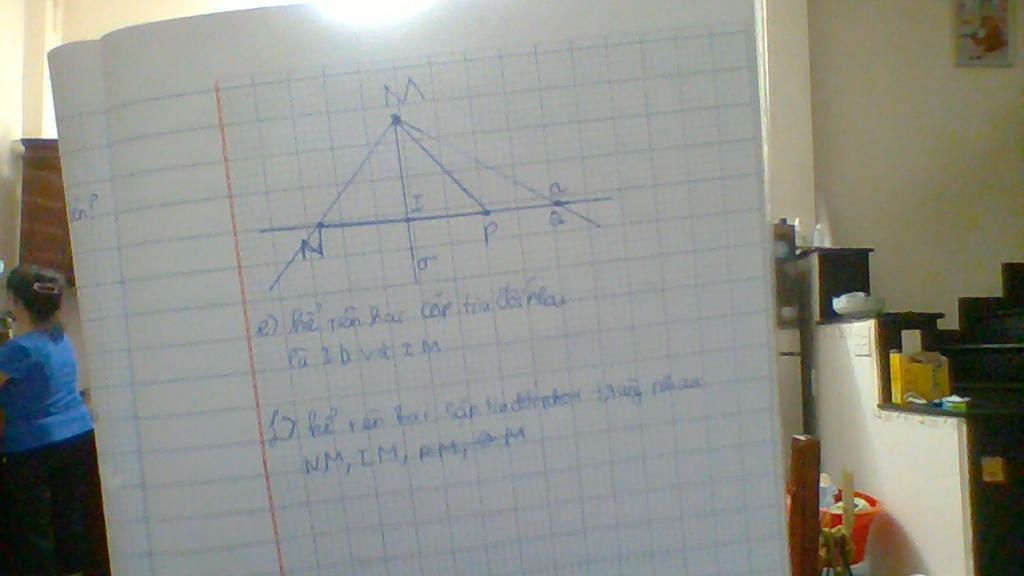 M
I
N
P
Q
e) kể tên hai cặp tia đối nhau
là và IM
f) kể tên hai cặp tia trùng nhau
NM, IM, PM, QM